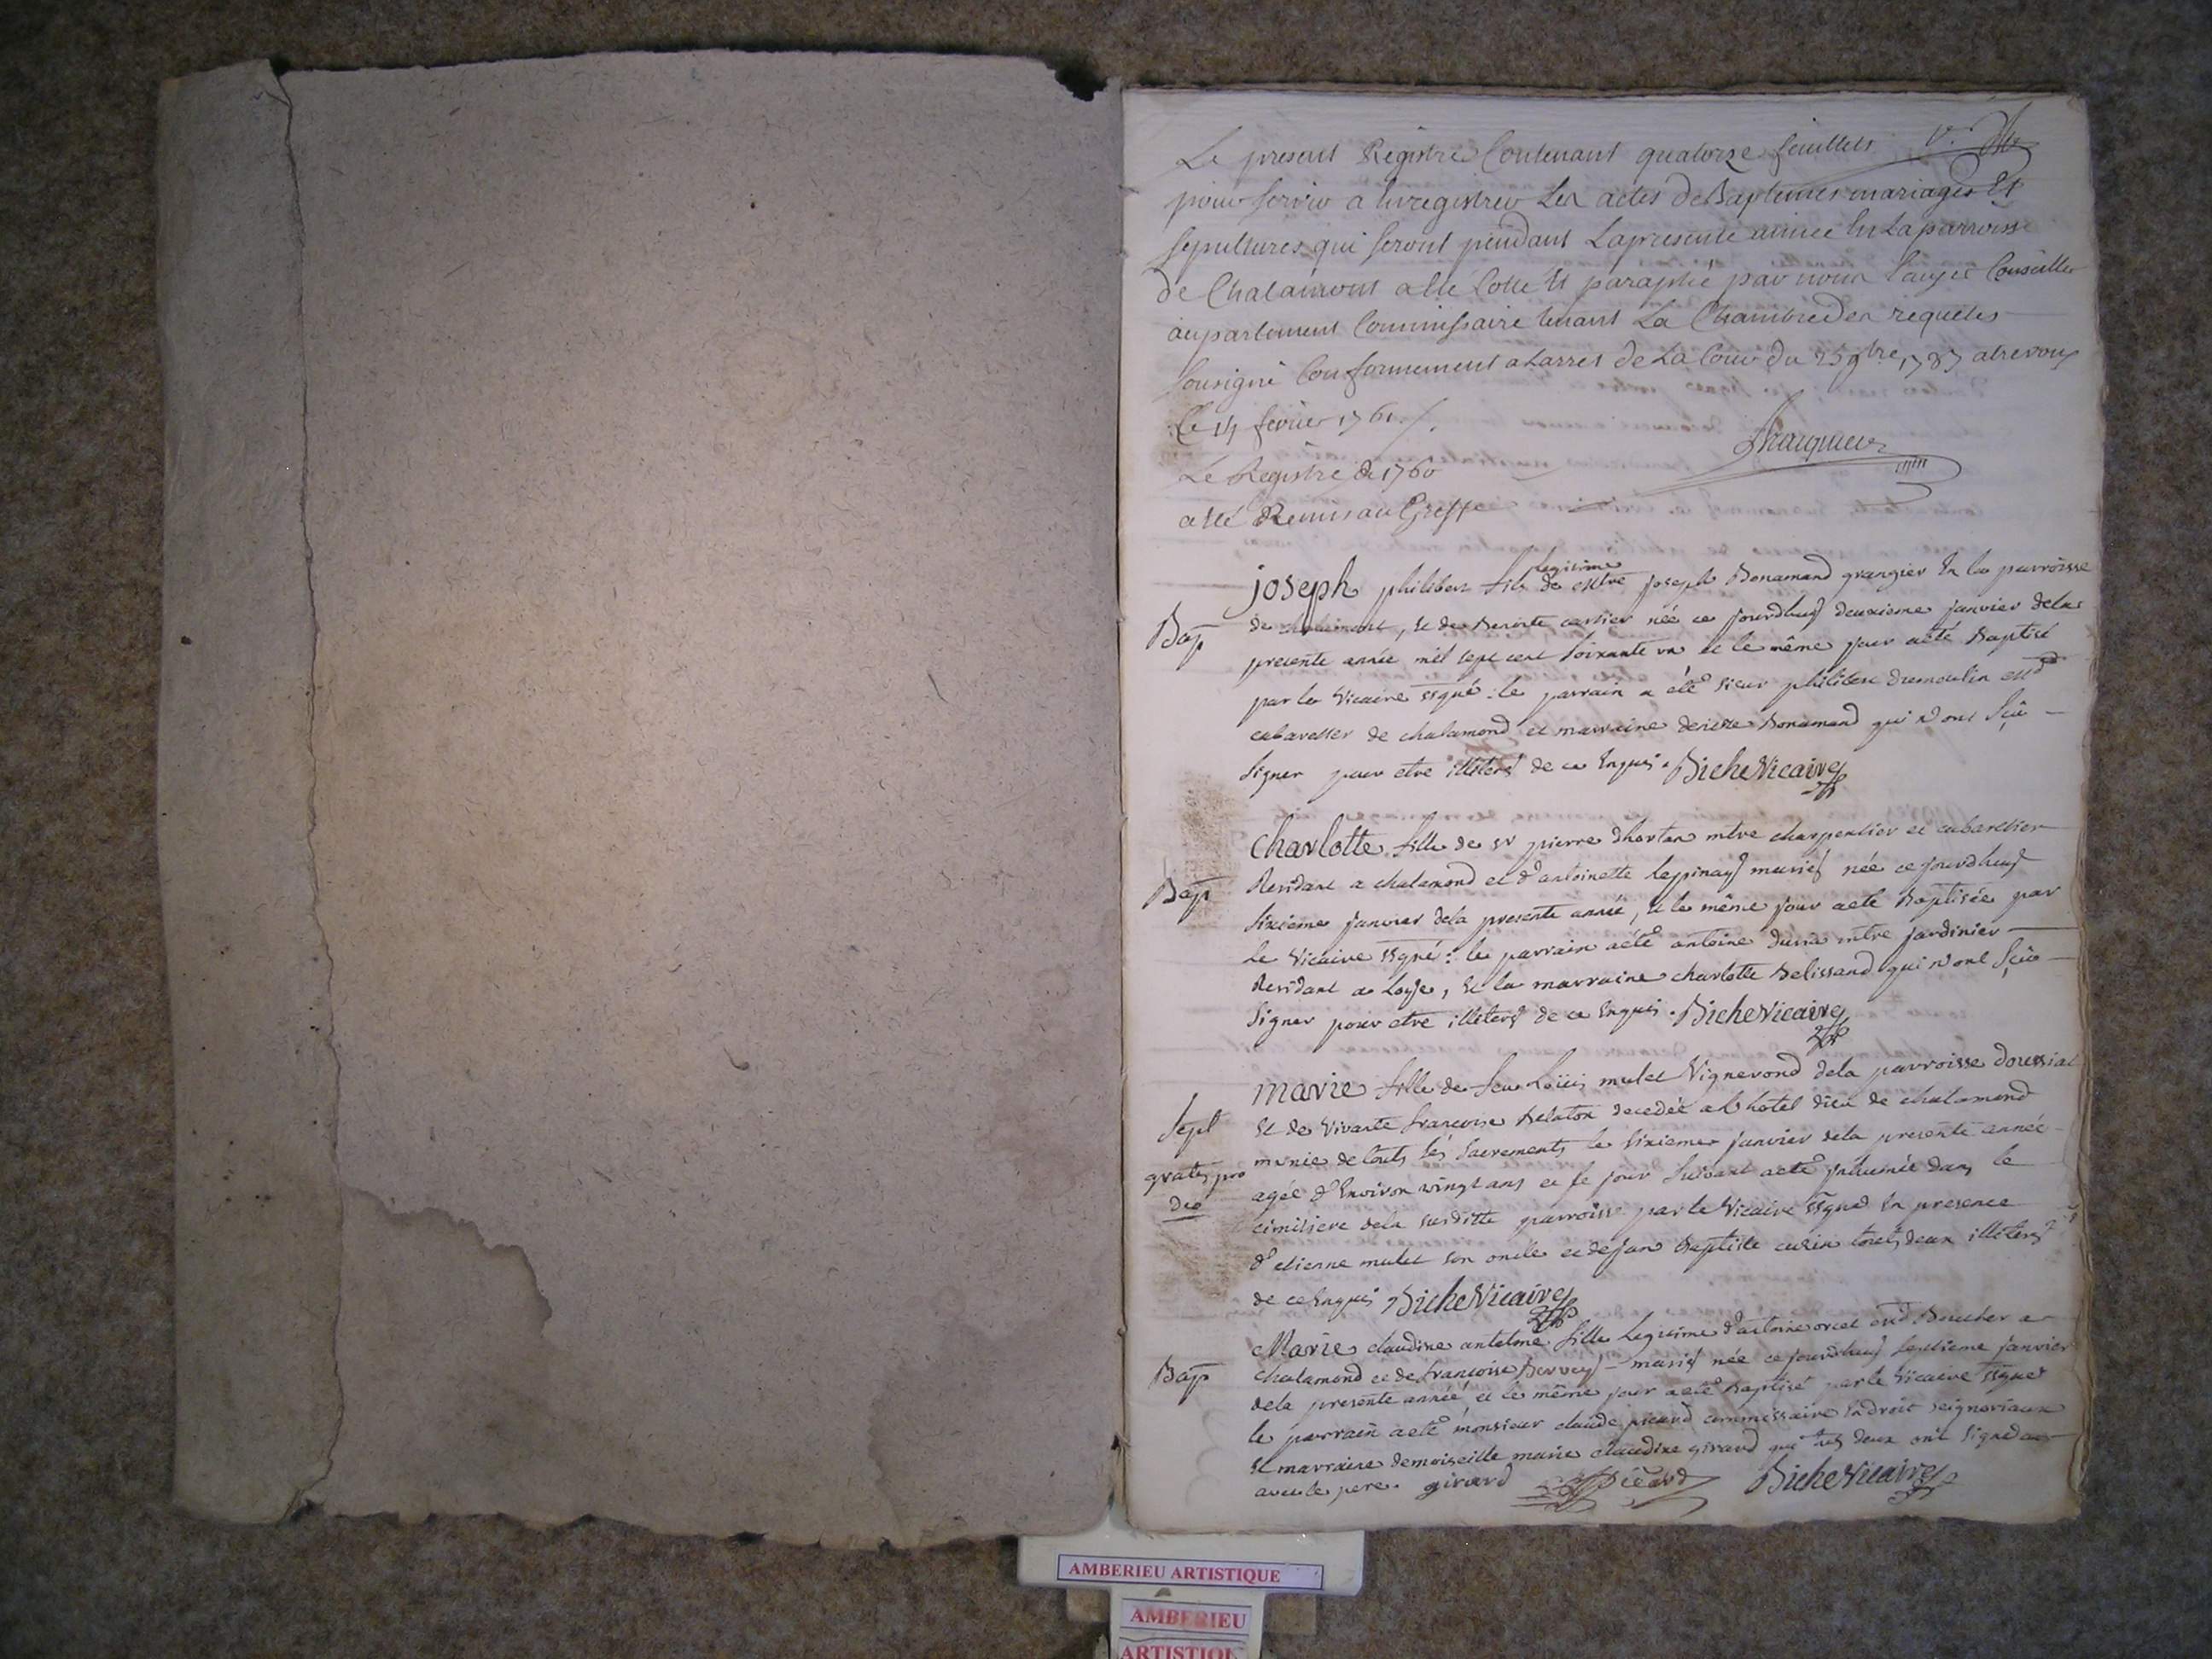 Le present Registre Contenant quatorze feuillets
pour servir a Enregistrer Les actes de Baptemes mariages Et
sepultures qui seront pendant La presente année En La parroisse
de Chalamont a été Cotté Et paraphé par nous Conseiller
au parlement Commissaire tenant La Chambre des requetes
soussigné Conformement a Larret de La Cour du 25 9bre
Ce 14 fevrier 1761
Le Registre de 1760
a été Remis au Greffe
Bap
joseph philibert fils legitime de mtre joseph Bonamand grangier En la parroisse
de chalamont, et de Benoite cartier née ce jourdhuy deuxieme janvier de la
presente année mil sept cent soixante un et le même jour a été Baptisé
par le Vicaire ssgné : le parrain a été sieur philibert dumoulin
cabaretier de chalamond et marraine denise Bonamand qui n'ont sçû
signer pour etre illiterés de ce Enquis. Biche Vicaire
Bap
charlotte fille de sr pierre dhortan mtre charpentier et cabaretier
Residant a chalamond et d'antoinette lepinay mariés née ce jourdhuy
sixieme janvier de la presente année, et le même jour a été Baptisée par
le Vicaire ssgné : le parrain a été antoine mtre jardinier
Residant a Loyse, et la marraine charlotte Belissand qui n'ont sçû
signer pour etre illiterés de ce Enquis. Biche Vicaire
Sept
gratis pro
deo
marie fille de feu Loüis mulet Vignerond de la parroisse
et de Vivante françoise Belaton decedée a l'hotel dieu de chalamond
munie de touts les sacrements le sixieme janvier de la presente année
agée d'Environ vingt ans et le jour suivant a été inhumée dans le
cimitiere de la susditte parroisse par le Vicaire ssgné En presence
d'etienne mulet son oncle et de jean Baptiste cusin touts deux illiterés
de ce Enquis Biche Vicaire
Bap
Marie claudine antelme fille Legitime d'antoine orset Boucher a
chalamond et de françoise mariés née ce jourdhuy septieme janvier
de la presente année, et le même jour a été Baptisé par le Vicaire ssgné
le parrain a été monsieur claude picard commissaire En droit seignoriaux
et marraine demoiseille marie claudine girard qui touts deux ont signé
avec le pere. girard Picard Biche Vicaire
AMBERIEU ARTISTIQUE
AMBERIEU